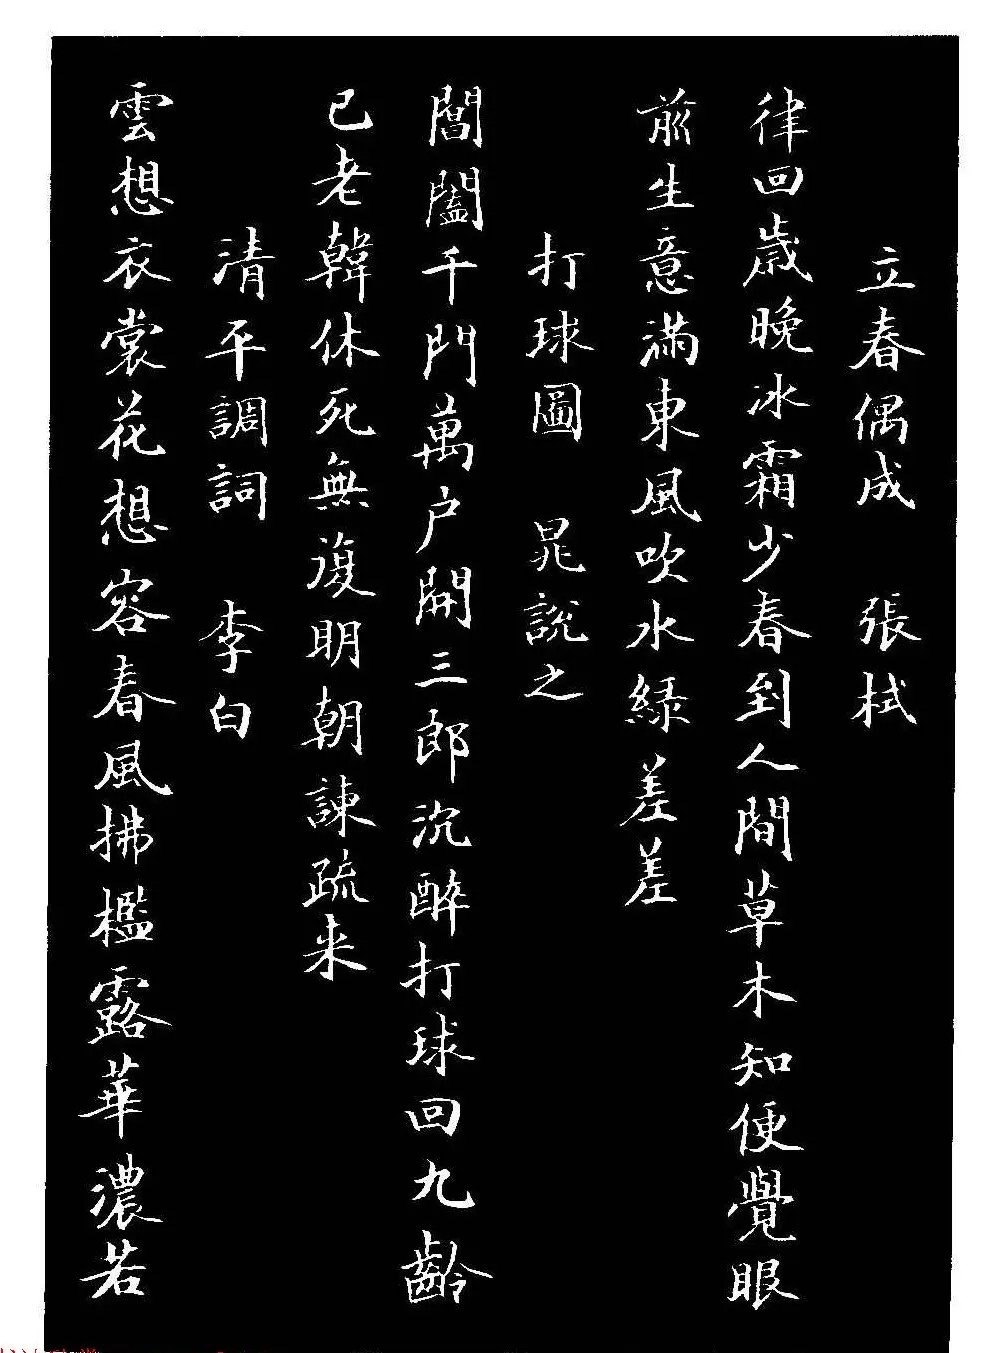 立春偶成 張栻
律回歲晚冰霜少春到人間草木知便覺眼
前生意滿東風吹水綠差差
打球圖 晁說之
閶闔千門萬户開三郎沉醉打球回九齡
已老韓休死無復明朝諫疏来
清平調詞 李白
雲想衣裳花想容春風拂檻露華濃若